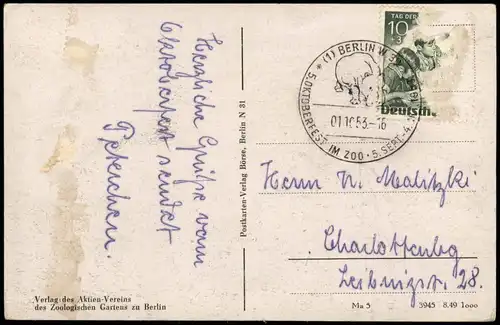 Herzliche Grüße vom
Oktoberfest sendet
Peterchen.
Verlag des Aktien-Vereins
des Zoologischen Gartens zu Berlin
Postkarten-Verlag Börse, Berlin N 31
TAG DER
10+3
Deutsch
(1) BERLIN W
5. OKTOBERFEST IM ZOO · 5. SEPT. - 4.
01.10.53.-16
Herrn N. Malitzki
Charlottenbg
Leibnizst. 28.
Ma 5 5945 8.49 1000